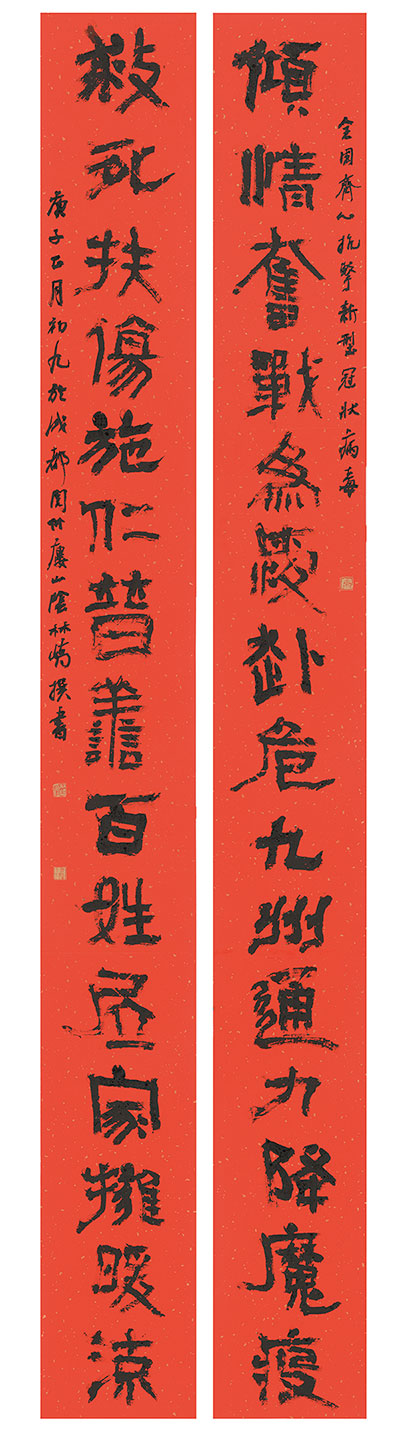 全国齊心抗擊新型冠狀病毒
傾情奮戰為赴危九州通力降魔疫
救死扶傷施仁普善百姓家擁暖涼
庚子正月初九於成都竹廔山陰林撰書